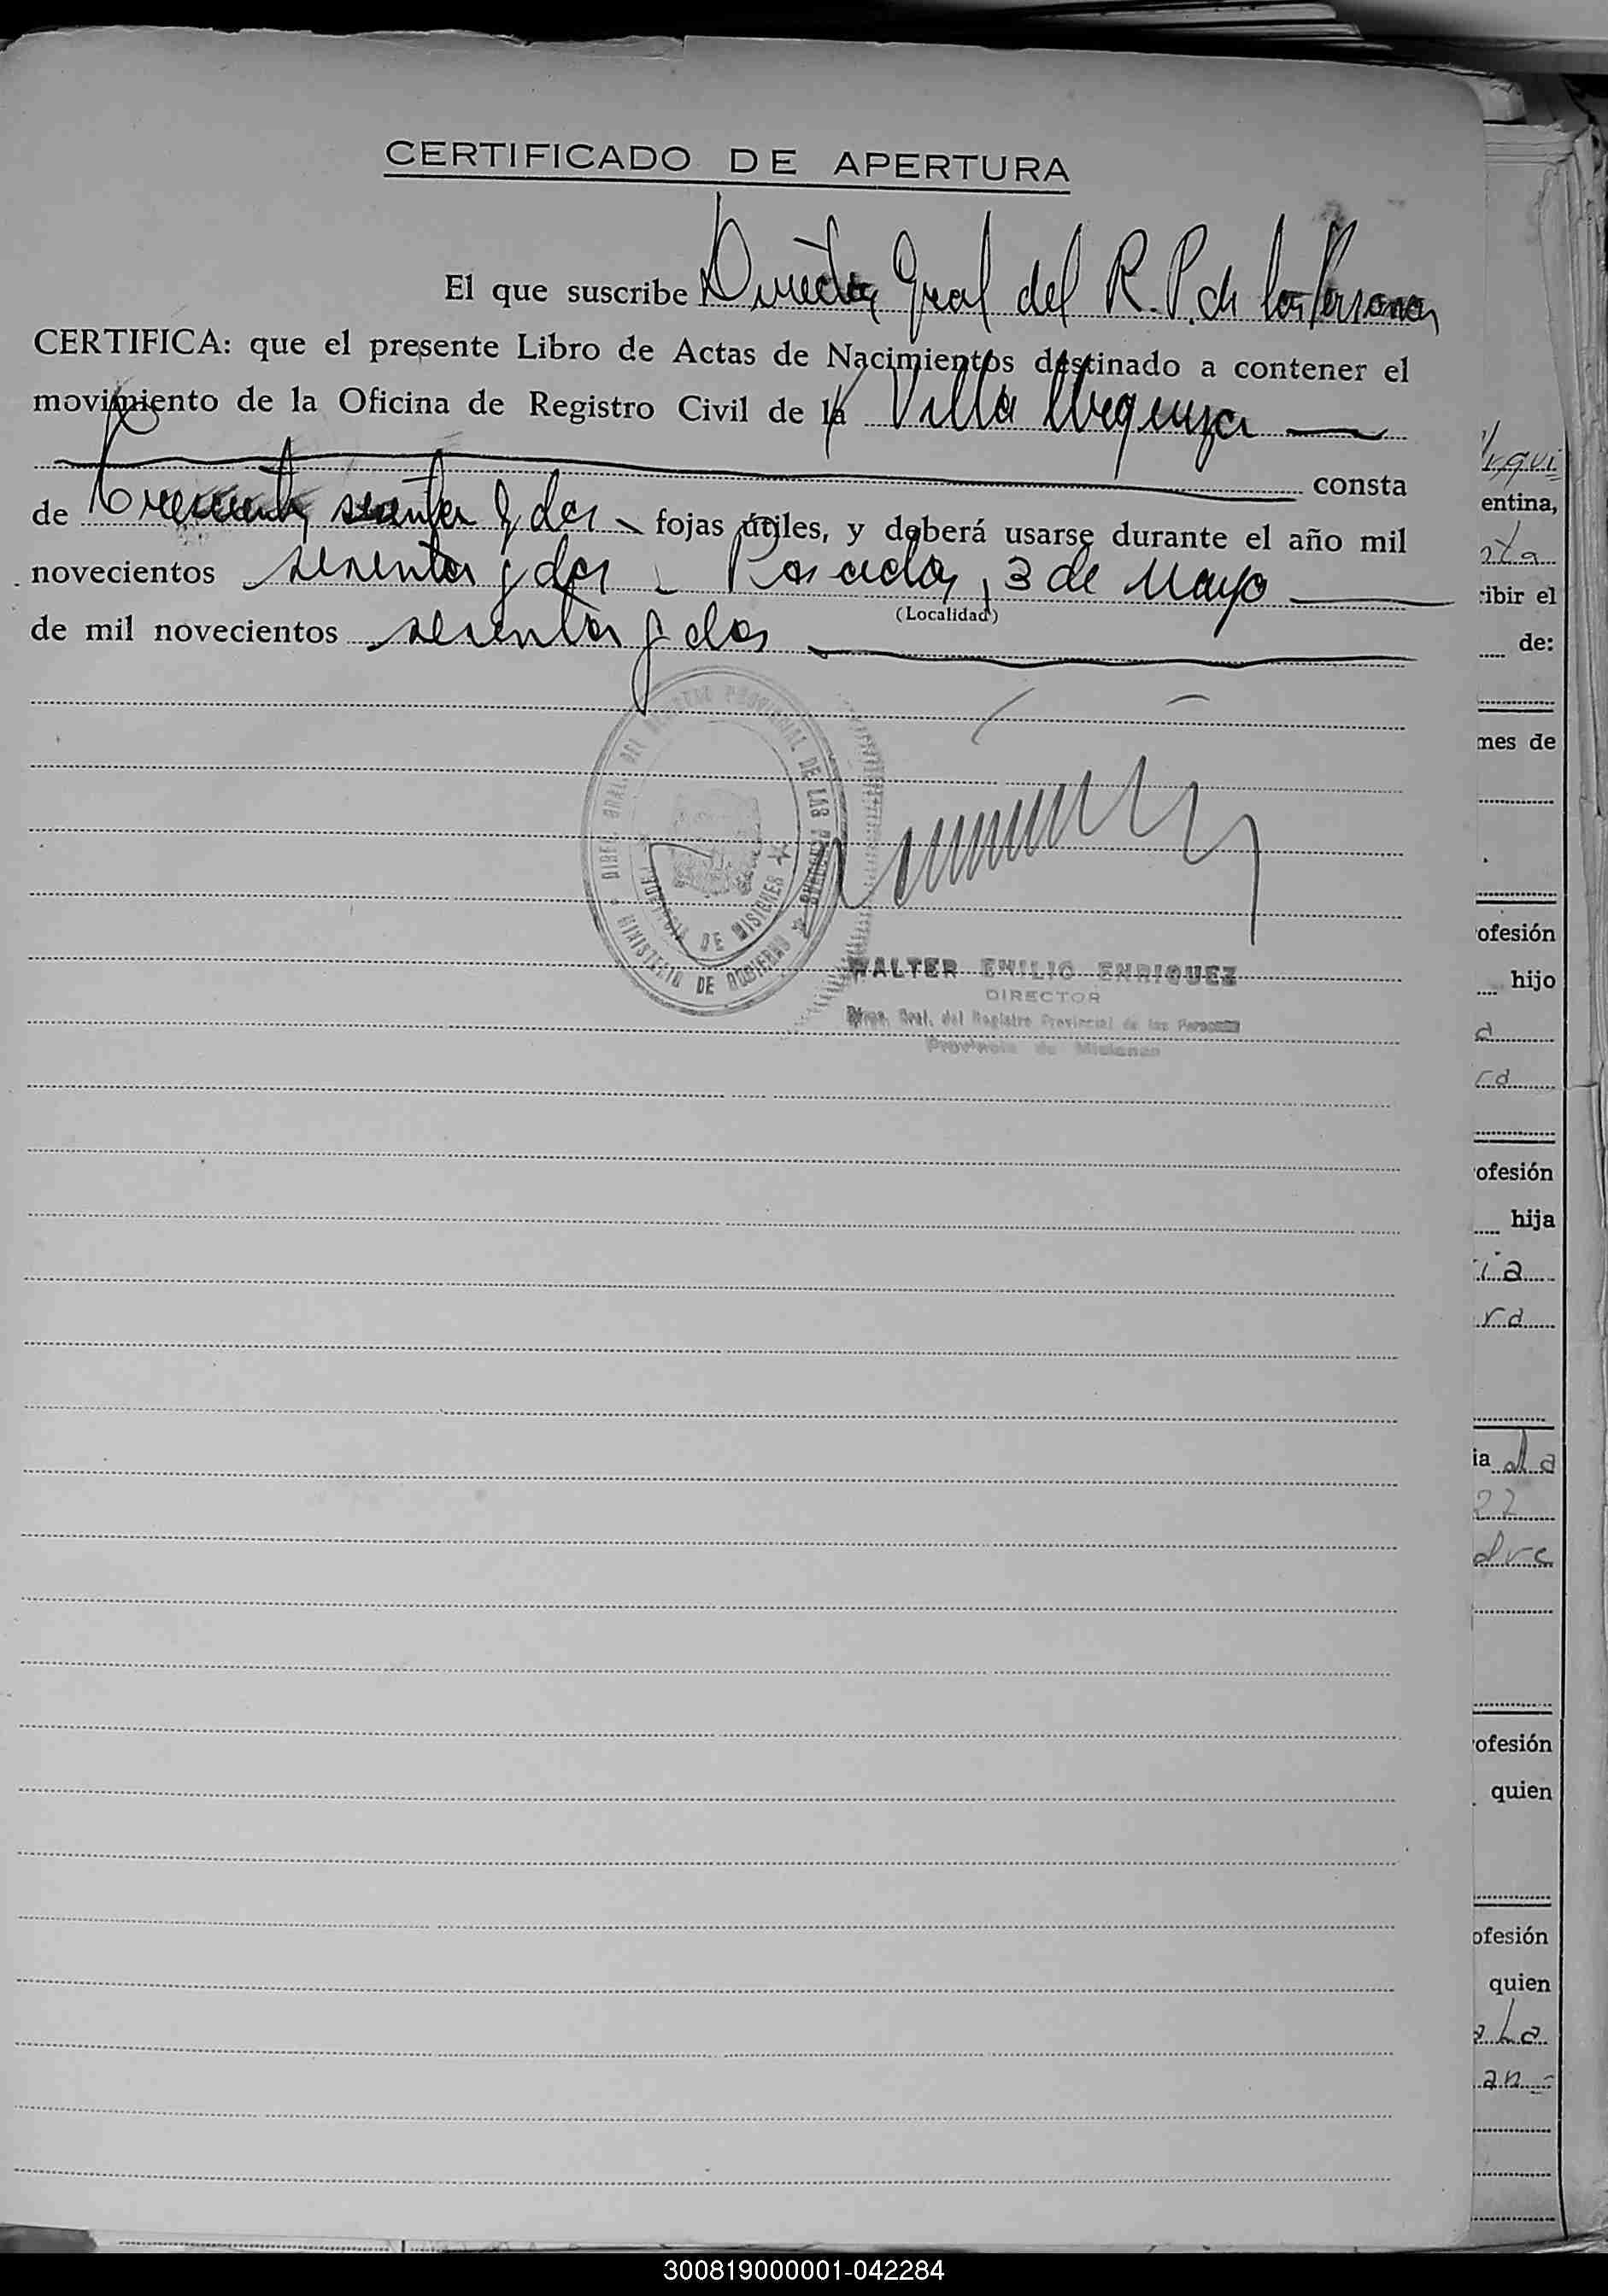 CERTIFICADO DE APERTURA
El que suscribe Director Gral del R.P. de las Personas
CERTIFICA: que el presente Libro de Actas de Nacimientos destinado a contener el
movimiento de la Oficina de Registro Civil de la Villa Urquiza
consta
de sesenta y dos fojas útiles, y deberá usarse durante el año mil
novecientos sesenta y dos Posadas, 3 de Mayo
(Localidad)
de mil novecientos sesenta y dos
DIREC. GRAL. DEL REGISTRO PROVINCIAL DE LAS PERSONAS
PROVINCIA DE MISIONES
MINISTERIO DE GOBIERNO
WALTER EMILIO ENRIQUEZ
DIRECTOR
Direc. Gral. del Registro Provincial de las Personas
Provincia de Misiones
entina,
ibir el
de:
mes de
ofesión
hijo
ofesión
hija
ia
rd
ia
22
ofesión
quien
ofesión
quien
an
300819000001-042284